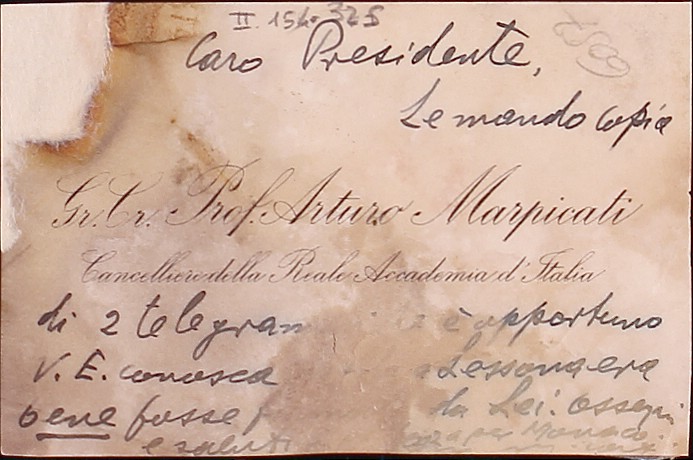 II. 154. 325
Caro Presidente,
Le mando copia
Gr. Cr. Prof. Arturo Marpicati
Cancelliere della Reale Accademia d'Italia
di 2 telegram è opportuno
V. E. conosca Lessona era
bene fosse da Lei. Ossequi
e saluti